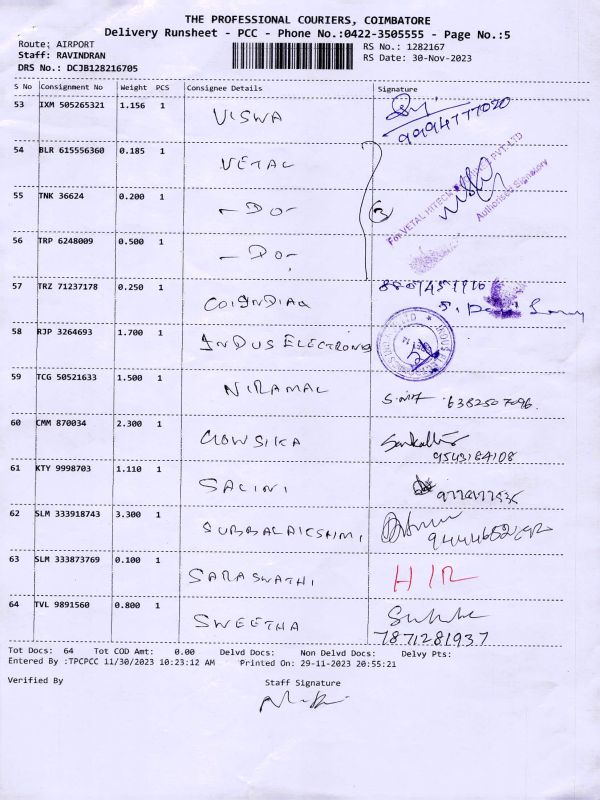 THE PROFESSIONAL COURIERS, COIMBATORE
Delivery Runsheet - PCC - Phone No.:0422-3505555 - Page No.:5
Route: AIRPORT RS No.: 1282167
Staff: RAVINDRAN RS Date: 30-Nov-2023
DRS No.: DCJB128216705
S No Consignment No Weight PCS Consignee Details Signature
53 IXM 505265321 1.156 1 VISWA
9994777020
54 BLR 615556360 0.185 1 VETAL
For VETAL HITECH PVT. LTD
Authorised Signatory
55 TNK 36624 0.200 1 -DO- 3
56 TRP 6248009 0.500 1 -DO-
57 TRZ 71237178 0.250 1 COINDIAA
58 RJP 3264693 1.700 1 INDUS ELECTRONIC
59 TCG 50521633 1.500 1 NIRAMAL 6382507096.
60 CMM 870034 2.300 1 GOWSIKA
9543184108
61 KTY 9998703 1.110 1 SALINI
62 SLM 333918743 3.300 1 SUBBALAKSHMI
63 SLM 333873769 0.100 1 SARASWATHI
64 TVL 9891560 0.800 1 SWEETHA
7871281937
Tot Docs: 64 Tot COD Amt: 0.00 Delvd Docs: Non Delvd Docs: Delvy Pts:
Entered By :TPCPCC 11/30/2023 10:23:12 AM Printed On: 29-11-2023 20:55:21
Verified By Staff Signature